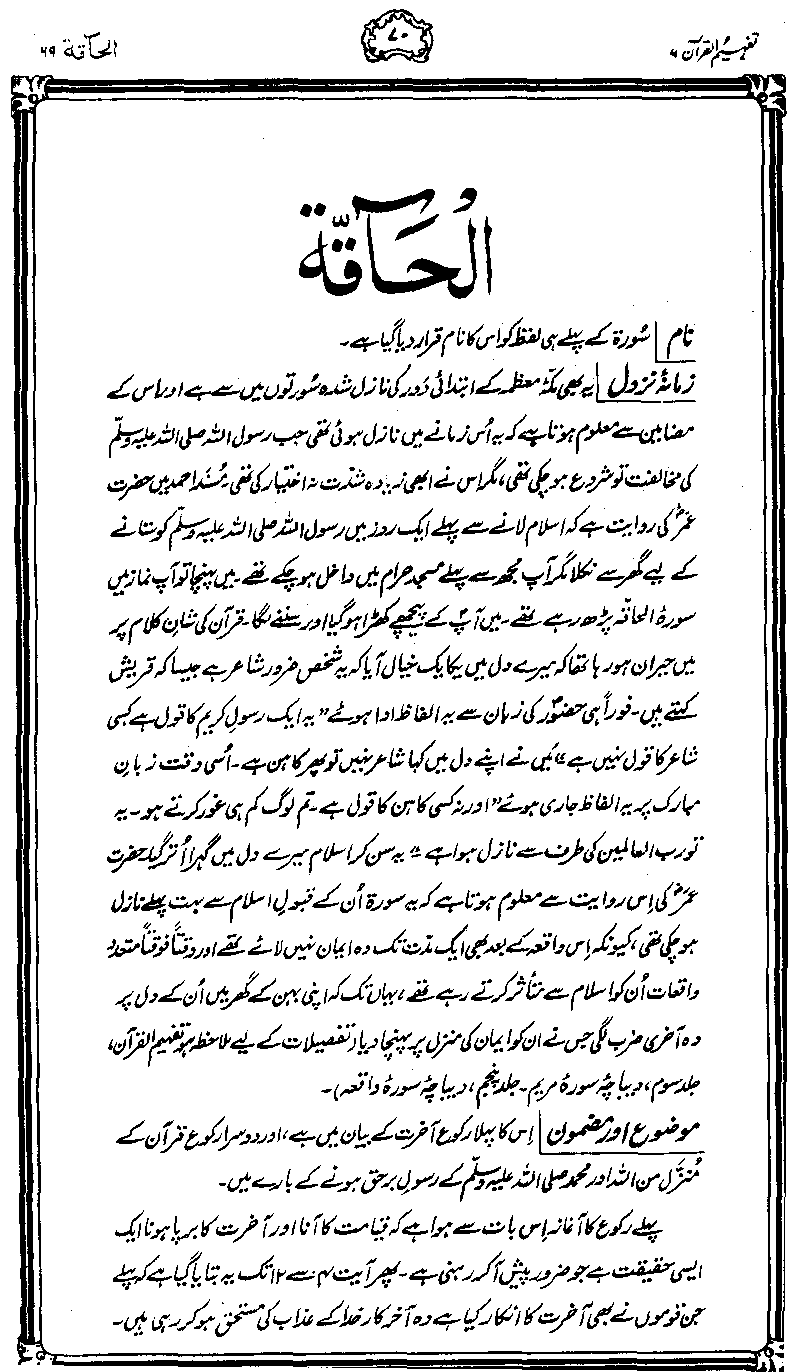 تفہیم القرآن ۶
۷۰
الحآقۃ ۶۹
الحآقّۃ
نام سُورۃ کے پہلے ہی لفظ کو اس کا نام قرار دیا گیا ہے۔
زمانۂ نزول یہ بھی مکّۂ معظمہ کے ابتدائی دَور کی نازل شدہ سُورتوں میں سے ہے اور اس کے
مضامین سے معلوم ہوتا ہے کہ یہ اُس زمانے میں نازل ہوئی تھی جب رسول اللہ صلی اللہ علیہ وسلّم
کی مخالفت تو شروع ہو چکی تھی، مگر اس نے ابھی زیادہ شدّت نہ اختیار کی تھی۔ مُسند احمد میں حضرت
عمرؓ کی روایت ہے کہ اسلام لانے سے پہلے ایک روز میں رسول اللہ صلی اللہ علیہ وسلّم کو ستانے
کے لیے گھر سے نکلا مگر آپ مجھ سے پہلے مسجد حرام میں داخل ہو چکے تھے۔ میں پہنچا تو آپ نماز میں
سورۂ الحاقّہ پڑھ رہے تھے۔ میں آپؐ کے پیچھے کھڑا ہو گیا اور سننے لگا۔ قرآن کی شانِ کلام پر
میں حیران ہو رہا تھا کہ میرے دل میں یکایک خیال آیا کہ یہ شخص ضرور شاعر ہے جیسا کہ قریش
کہتے ہیں۔ فوراً ہی حضورؐ کی زبان سے یہ الفاظ ادا ہوئے ”یہ ایک رسولِ کریم کا قول ہے کسی
شاعر کا قول نہیں ہے“ میں نے اپنے دل میں کہا شاعر نہیں تو پھر کاہن ہے۔ اُسی وقت زبانِ
مبارک پر یہ الفاظ جاری ہوئے ”اور نہ کسی کاہن کا قول ہے۔ تم لوگ کم ہی غور کرتے ہو۔ یہ
تو رب العالمین کی طرف سے نازل ہوا ہے“ یہ سن کر اسلام میرے دل میں گہرا اُتر گیا۔ حضرت
عمرؓ کی اِس روایت سے معلوم ہوتا ہے کہ یہ سورۃ اُن کے قبولِ اسلام سے بہت پہلے نازل
ہو چکی تھی، کیونکہ اِس واقعہ کے بعد بھی ایک مدّت تک وہ ایمان نہیں لائے تھے اور وقتاً فوقتاً متعدد
واقعات اُن کو اسلام سے متأثر کرتے رہے تھے، یہاں تک کہ اپنی بہن کے گھر میں اُن کے دل پر
وہ آخری ضرب لگی جس نے ان کو ایمان کی منزل پر پہنچا دیا (تفصیلات کے لیے ملاحظہ ہو تفہیم القرآن،
جلد سوم، دیباچۂ سورۂ مریم۔ جلد پنجم، دیباچۂ سورۂ واقعہ)۔
موضوع اور مضمون اِس کا پہلا رکوع آخرت کے بیان میں ہے، اور دوسرا رکوع قرآن کے
مُنَزَّل من اللہ اور محمد صلی اللہ علیہ وسلّم کے رسولِ برحق ہونے کے بارے میں۔
پہلے رکوع کا آغاز اِس بات سے ہوا ہے کہ قیامت کا آنا اور آخرت کا برپا ہونا ایک
ایسی حقیقت ہے جو ضرور پیش آ کر رہنی ہے۔ پھر آیت ۴ سے ۱۲ تک یہ بتایا گیا ہے کہ پہلے
جن قوموں نے بھی آخرت کا انکار کیا ہے وہ آخر کار خدا کے عذاب کی مستحق ہو کر رہی ہیں۔